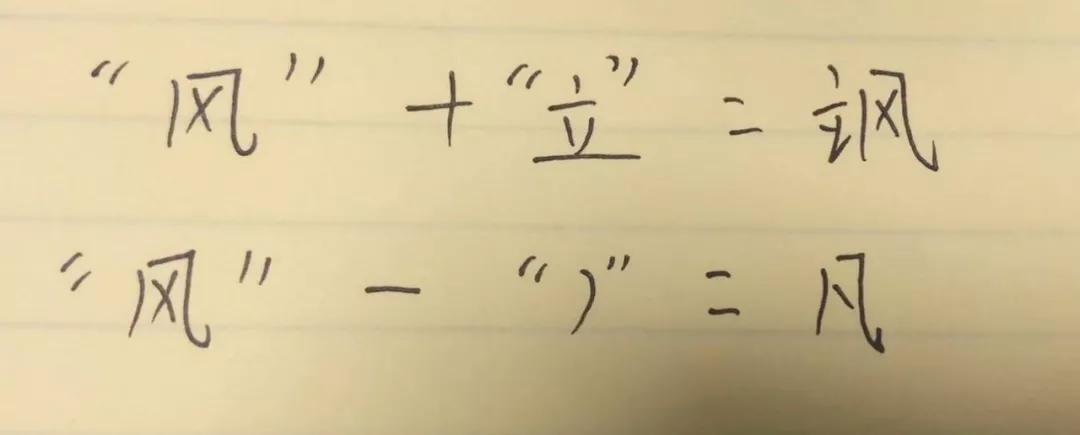 “风” + “立” = 飒
“风” - “丿” = 凡